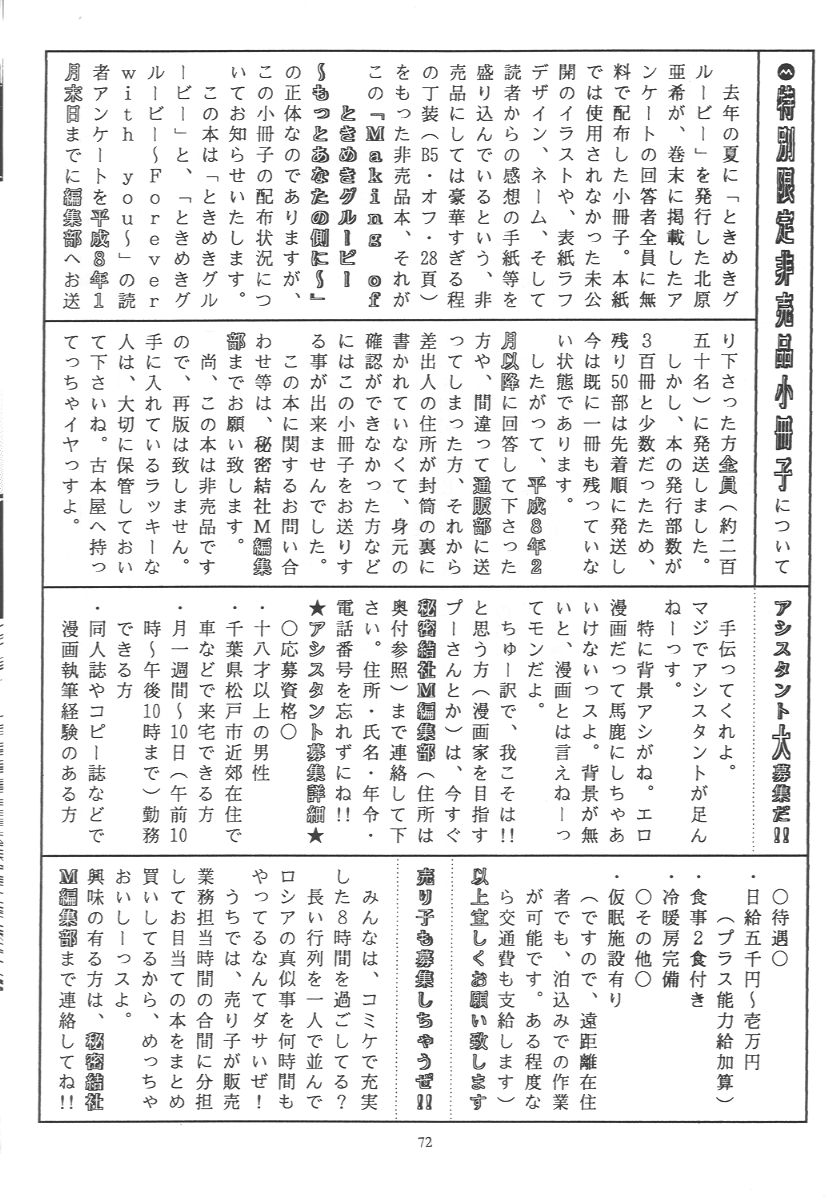 Ⓜ特別限定非売品小冊子について
去年の夏に「ときめきグ
ルーピー」を発行した北原
亜希が、巻末に掲載したア
ンケートの回答者全員に無
料で配布した小冊子。本紙
では使用されなかった未公
開のイラストや、表紙ラフ
デザイン、ネーム、そして
読者からの感想の手紙等を
盛り込んでいるという、非
売品にしては豪華すぎる程
の丁装（B5・オフ・28頁）
をもった非売品本、それが
この『Making of
ときめきグルーピー
〜もっとあなたの側に〜』
の正体なのでありますが、
この小冊子の配布状況につ
いてお知らせいたします。
この本は「ときめきグル
ーピー」と、「ときめきグ
ルーピー〜Forever
with you〜」の読
者アンケートを平成8年1
月末日までに編集部へお送
り下さった方全員（約二百
五十名）に発送しました。
しかし、本の発行部数が
3百冊と少数だったため、
残り50部は先着順に発送し
今は既に一冊も残っていな
い状態であります。
したがって、平成8年2
月以降に回答して下さった
方や、間違って通販部に送
ってしまった方、それから
差出人の住所が封筒の裏に
書かれていなくて、身元の
確認ができなかった方など
にはこの小冊子をお送りす
る事が出来ませんでした。
この本に関するお問い合
わせ等は、秘密結社M編集
部までお願い致します。
尚、この本は非売品です
ので、再版は致しません。
手に入れているラッキーな
人は、大切に保管しておい
て下さいね。古本屋へ持っ
てっちゃイヤっすよ。
アシスタント大募集だ!!
手伝ってくれよ。
マジでアシスタントが足ん
ねーっす。
特に背景アシがね。エロ
漫画だって馬鹿にしちゃあ
いけないっスよ。背景が無
いと、漫画とは言えねーっ
てモンだよ。
ちゅー訳で、我こそは!!
と思う方（漫画家を目指す
プーさんとか）は、今すぐ
秘密結社M編集部（住所は
奥付参照）まで連絡して下
さい。住所・氏名・年令・
電話番号を忘れずにね!!
★アシスタント募集詳細★
○応募資格○
・十八才以上の男性
・千葉県松戸市近郊在住で
車などで来宅できる方
・月一週間〜10日（午前10
時〜午後10時まで）勤務
できる方
・同人誌やコピー誌などで
漫画執筆経験のある方
○待遇○
・日給五千円〜壱万円
（プラス能力給加算）
・食事2食付き
・冷暖房完備
○その他○
・仮眠施設有り
（ですので、遠距離在住
者でも、泊込みでの作業
が可能です。ある程度な
ら交通費も支給します）
以上宜しくお願い致します
売り子も募集しちゃうぜ!!
みんなは、コミケで充実
した8時間を過ごしてる？
長い行列を一人で並んで
ロシアの真似事を何時間も
やってるなんてダサいぜ！
うちでは、売り子が販売
業務担当時間の合間に分担
してお目当ての本をまとめ
買いしてるから、めっちゃ
おいしーっスよ。
興味の有る方は、秘密結社
M編集部まで連絡してね!!
72